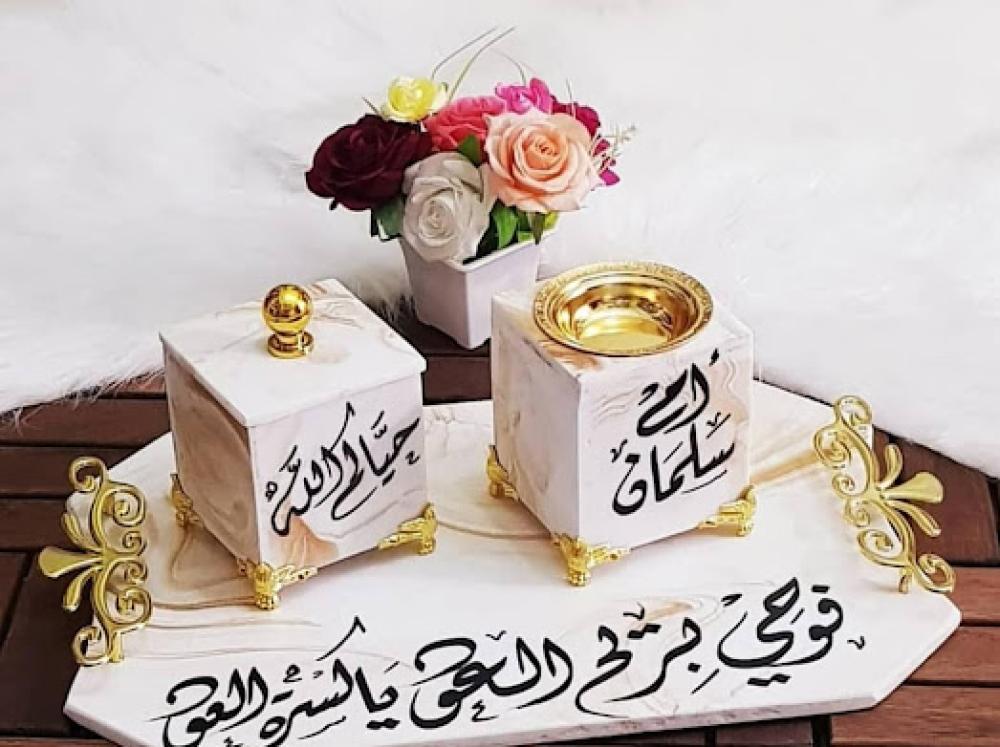 حيّاكم الله
أم
سلمان
فوحي بريح العود يا كسرة العود